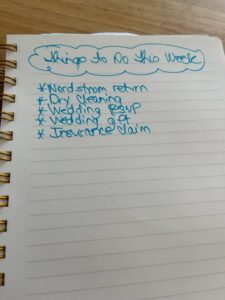 Things to Do This Week
* Nordstrom return
* Dry cleaning
* Wedding RSVP
* Wedding gift
* Insurance claim